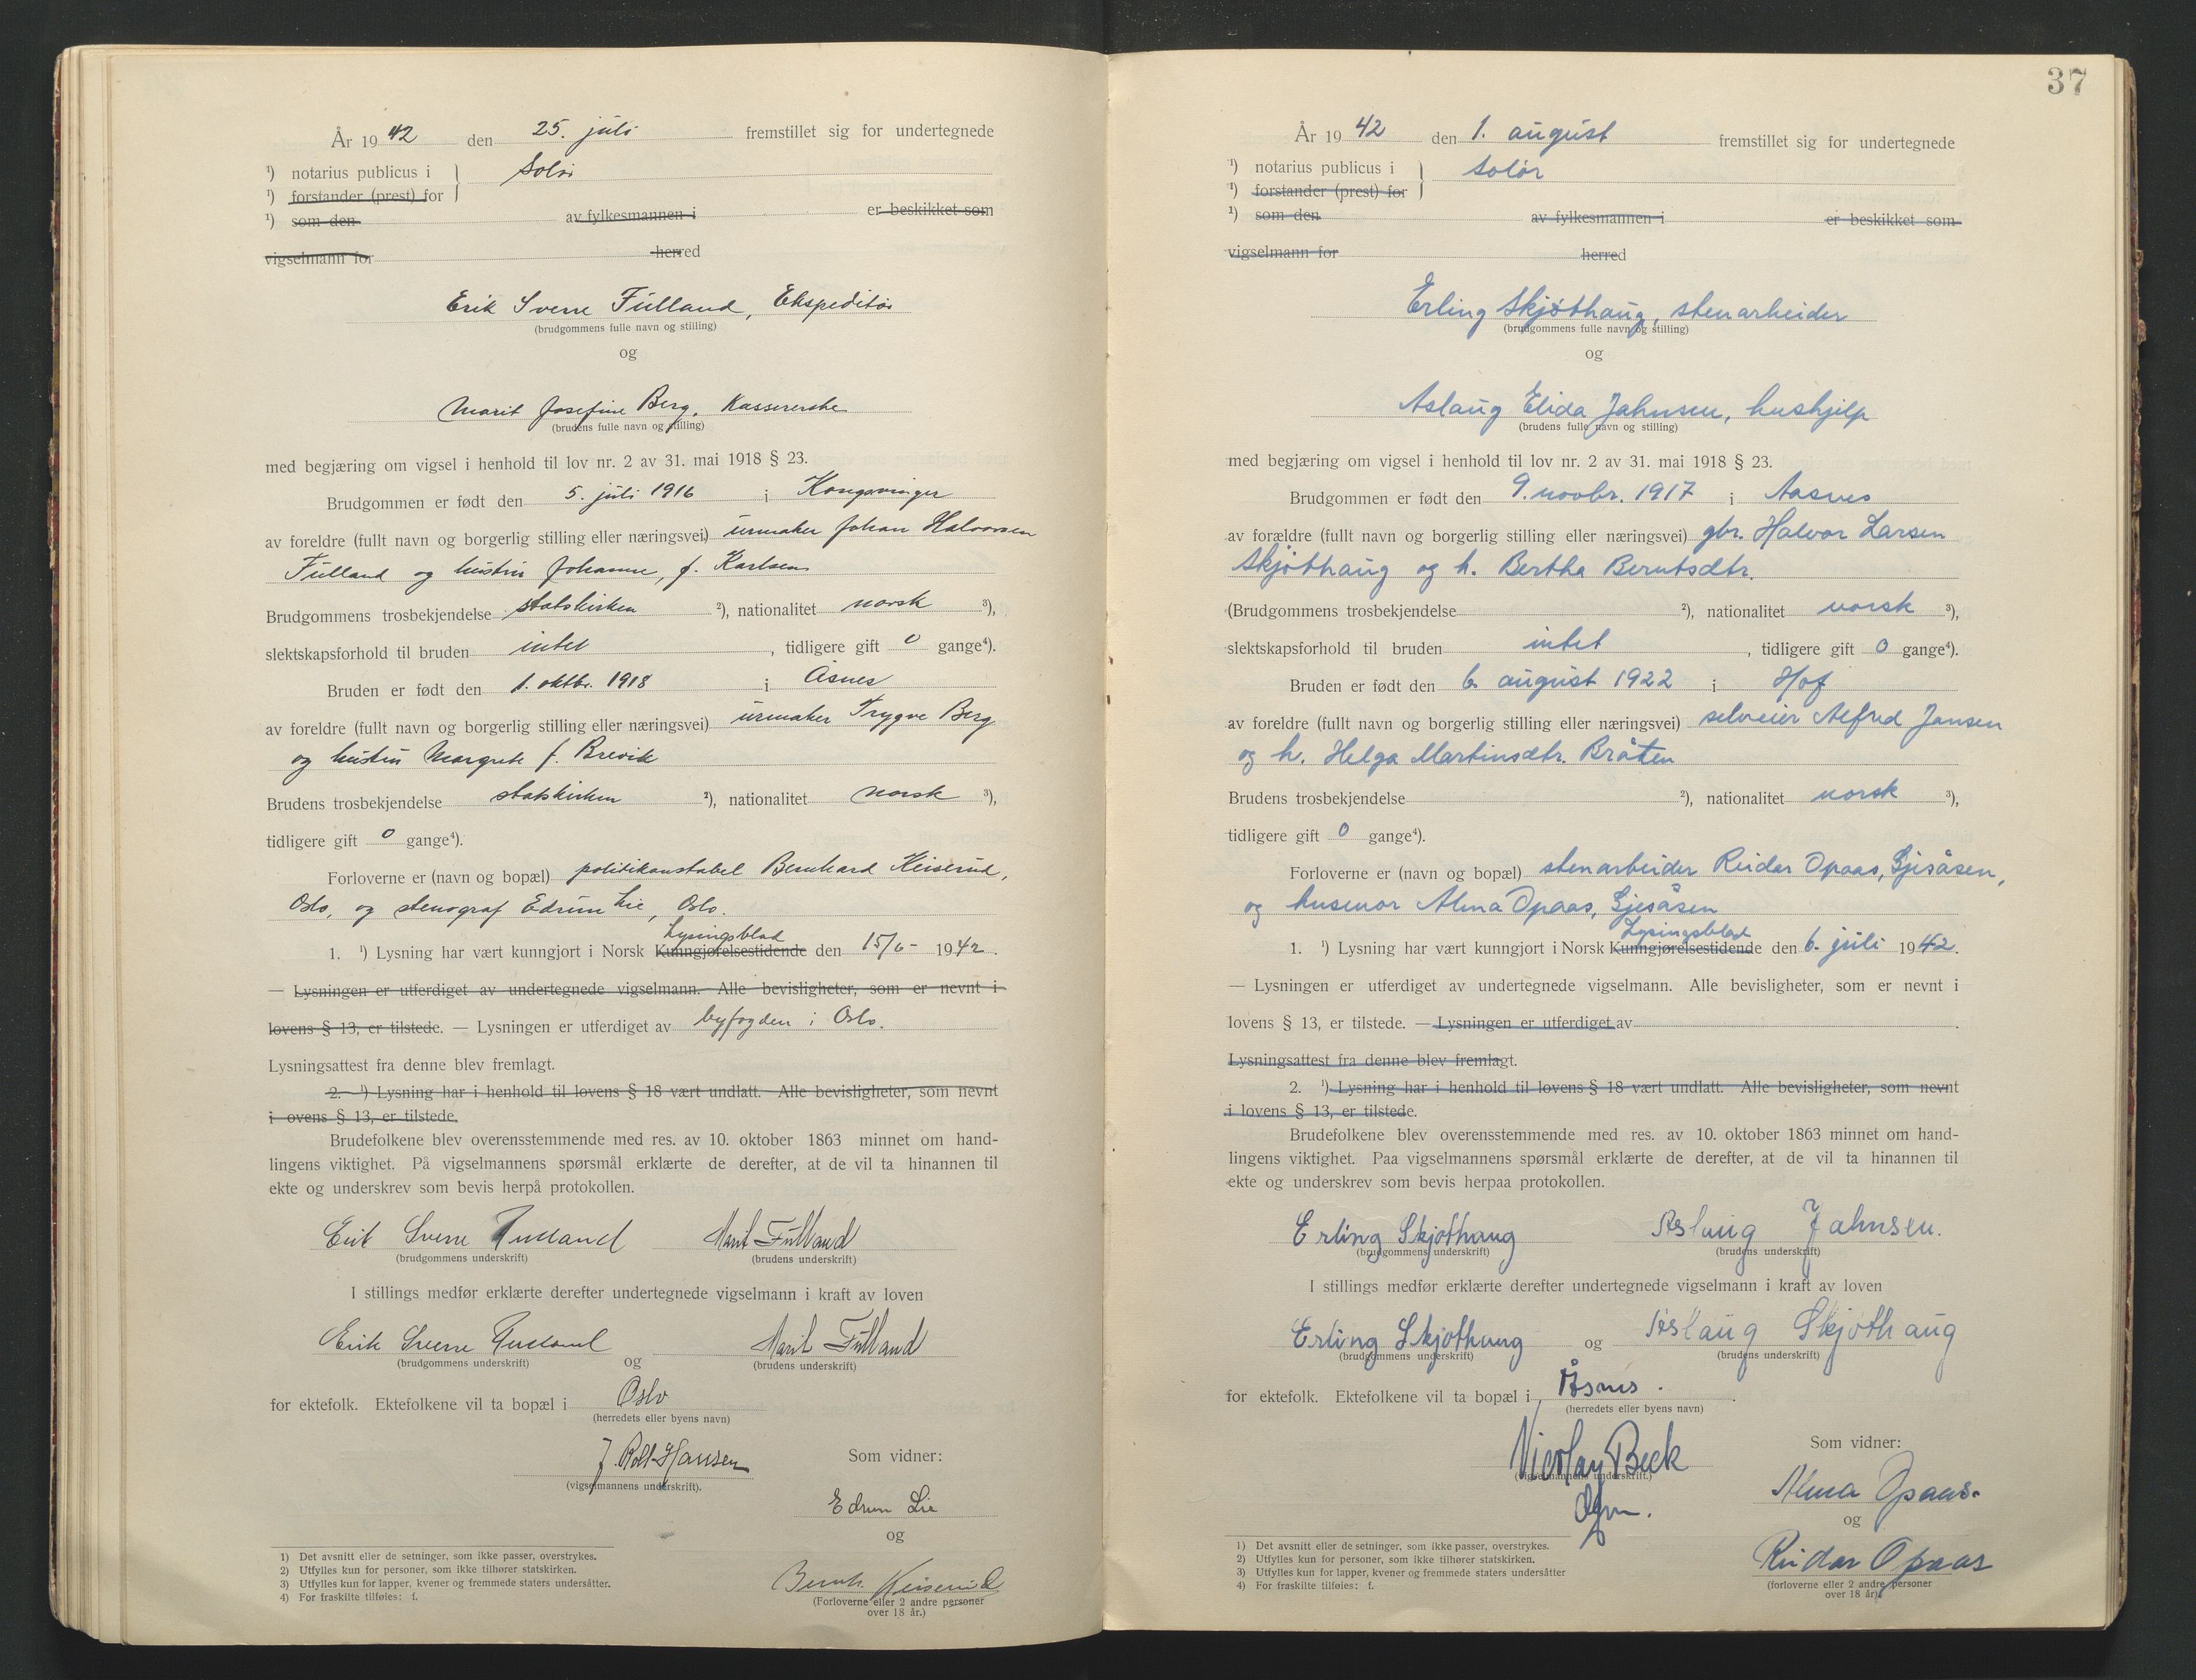 År 1942 den 25. juli fremstillet sig for undertegnede
¹) notarius publicus i } Solør
¹) forstander (prest) for
¹) som den av fylkesmannen i er beskikket som
vigselmann for herred
Erik Sverre Fulland, Ekspeditør
(brudgommens fulle navn og stilling)
og
Marit Josefine Berg, Kassererske
(brudens fulle navn og stilling)
med begjæring om vigsel i henhold til lov nr. 2 av 31. mai 1918 § 23.
Brudgommen er født den 5. juli 1916 i Kongsvinger
av foreldre (fullt navn og borgerlig stilling eller næringsvei) urmaker Johan Halvorsen
Fulland og hustru Johanne, f. Karlsen
Brudgommens trosbekjendelse statskirken ²), nationalitet norsk ³),
slektskapsforhold til bruden intet, tidligere gift 0 gange⁴).
Bruden er født den 1. oktbr. 1918 i Åsnes
av foreldre (fullt navn og borgerlig stilling eller næringsvei) urmaker Trygve Berg
og hustru Margrete f. Brevik
Brudens trosbekjendelse statskirken ²), nationalitet norsk ³),
tidligere gift 0 gange⁴).
Forloverne er (navn og bopæl) politikonstabel Bernhard Keiserud,
Oslo, og stenograf Edrun Lie, Oslo.
Lysingsblad
1. ¹) Lysning har vært kunngjort i Norsk Kunngjørelsestidende den 15/6- 1942.
— Lysningen er utferdiget av undertegnede vigselmann. Alle bevisligheter, som er nevnt i
lovens § 13, er tilstede. — Lysningen er utferdiget av byfogden i Oslo.
Lysningsattest fra denne blev fremlagt.
2. ¹) Lysning har i henhold til lovens § 18 vært undlatt. Alle bevisligheter, som nevnt
i ovens § 13, er tilstede.
Brudefolkene blev overensstemmende med res. av 10. oktober 1863 minnet om hand-
lingens viktighet. På vigselmannens spørsmål erklærte de derefter, at de vil ta hinannen til
ekte og underskrev som bevis herpå protokollen.
Erik Sverre Fulland Marit Fulland
(brudgommens underskrift) (brudens underskrift)
I stillings medfør erklærte derefter undertegnede vigselmann i kraft av loven
Erik Sverre Fulland og Marit Fulland
(brudgommens underskrift) (brudens underskrift)
for ektefolk. Ektefolkene vil ta bopæl i Oslo
(herredets eller byens navn)
J. Roll-Hansen
(vigselmannens underskrift).
Som vidner:
Edrun Lie
og
Bernh. Keiserud
(Forloverne eller 2 andre personer
over 18 år.)
1) Det avsnitt eller de setninger, som ikke passer, overstrykes.
2) Utfylles kun for personer, som ikke tilhører statskirken.
3) Utfylles kun for lapper, kvener og fremmede staters undersåtter.
4) For fraskilte tilføies: f.
37
År 1942 den 1. august fremstillet sig for undertegnede
¹) notarius publicus i } Solør
¹) forstander (prest) for
¹) som den av fylkesmannen i er beskikket som
vigselmann for herred
Erling Skjøthaug, stenarbeider
(brudgommens fulle navn og stilling)
og
Aslaug Elida Jahnsen, hushjelp
(brudens fulle navn og stilling)
med begjæring om vigsel i henhold til lov nr. 2 av 31. mai 1918 § 23.
Brudgommen er født den 9. novbr. 1917 i Aasnes
av forældre (fullt navn og borgerlig stilling eller næringsvei) gbr. Halvor Larsen
Skjøthaug og h. Bertha Berntsdtr.
(Brudgommens trosbekjendelse ²), nationalitet norsk ³),
slektskapsforhold til bruden intet, tidligere gift 0 gange⁴).
Bruden er født den 6 august 1922 i Hof
av foreldre (fullt navn og borgerlig stilling eller næringsvei) selveier Alfred Jansen
og h. Helga Martinsdtr. Bråten
Brudens trosbekjendelse ²), nationalitet norsk ³),
tidligere gift 0 gange⁴).
Forloverne er (navn og bopæl) stenarbeider Reidar Opaas, Gjesåsen,
og husmor Alma Opaas, Gjesåsen
Lysingsblad
1. ¹) Lysning har vært kunngjort i Norsk Kunngjørelsestidende den 6. juli 1942.
— Lysningen er utferdiget av undertegnede vigselmann. Alle bevisligheter, som er nevnt i
lovens § 13, er tilstede. — Lysningen er utferdiget av .
Lysningsattest fra denne blev fremlagt.
2. ¹) Lysning har i henhold til lovens § 18 vært undlatt. Alle bevisligheter, som nevnt
i lovens § 13, er tilstede.
Brudefolkene blev overensstemmende med res. av 10. oktober 1863 minnet om hand-
lingens viktighet. Paa vigselmannens spørsmål erklærte de derefter, at de vil ta hinannen til
ekte og underskrev som bevis herpaa protokollen.
Erling Skjøthaug Aslaug Jahnsen.
(brudgommens underskrift) (brudens underskrift)
I stillings medfør erklærte derefter undertegnede vigselmann i kraft av loven
Erling Skjøthaug og Aslaug Skjøthaug
(brudgommens underskrift) (brudens underskrift)
for ektefolk. Ektefolkene vil ta bopæl i Åsnes.
(herredets eller byens navn)
Nicolay Beck
(vigselmannens underskrift.)
Som vidner:
Alma Opaas.
og
Reidar Opaas
(forloverne eller 2 andre personer
over 18 år).
1) Det avsnitt eller de setninger, som ikke passer, overstrykes.
2) Utfylles kun for personer, som ikke tilhører statskirken.
3) Utfylles kun for lapper, kvener og fremmede staters undersåtter
4) For fraskilte tilføies: f.